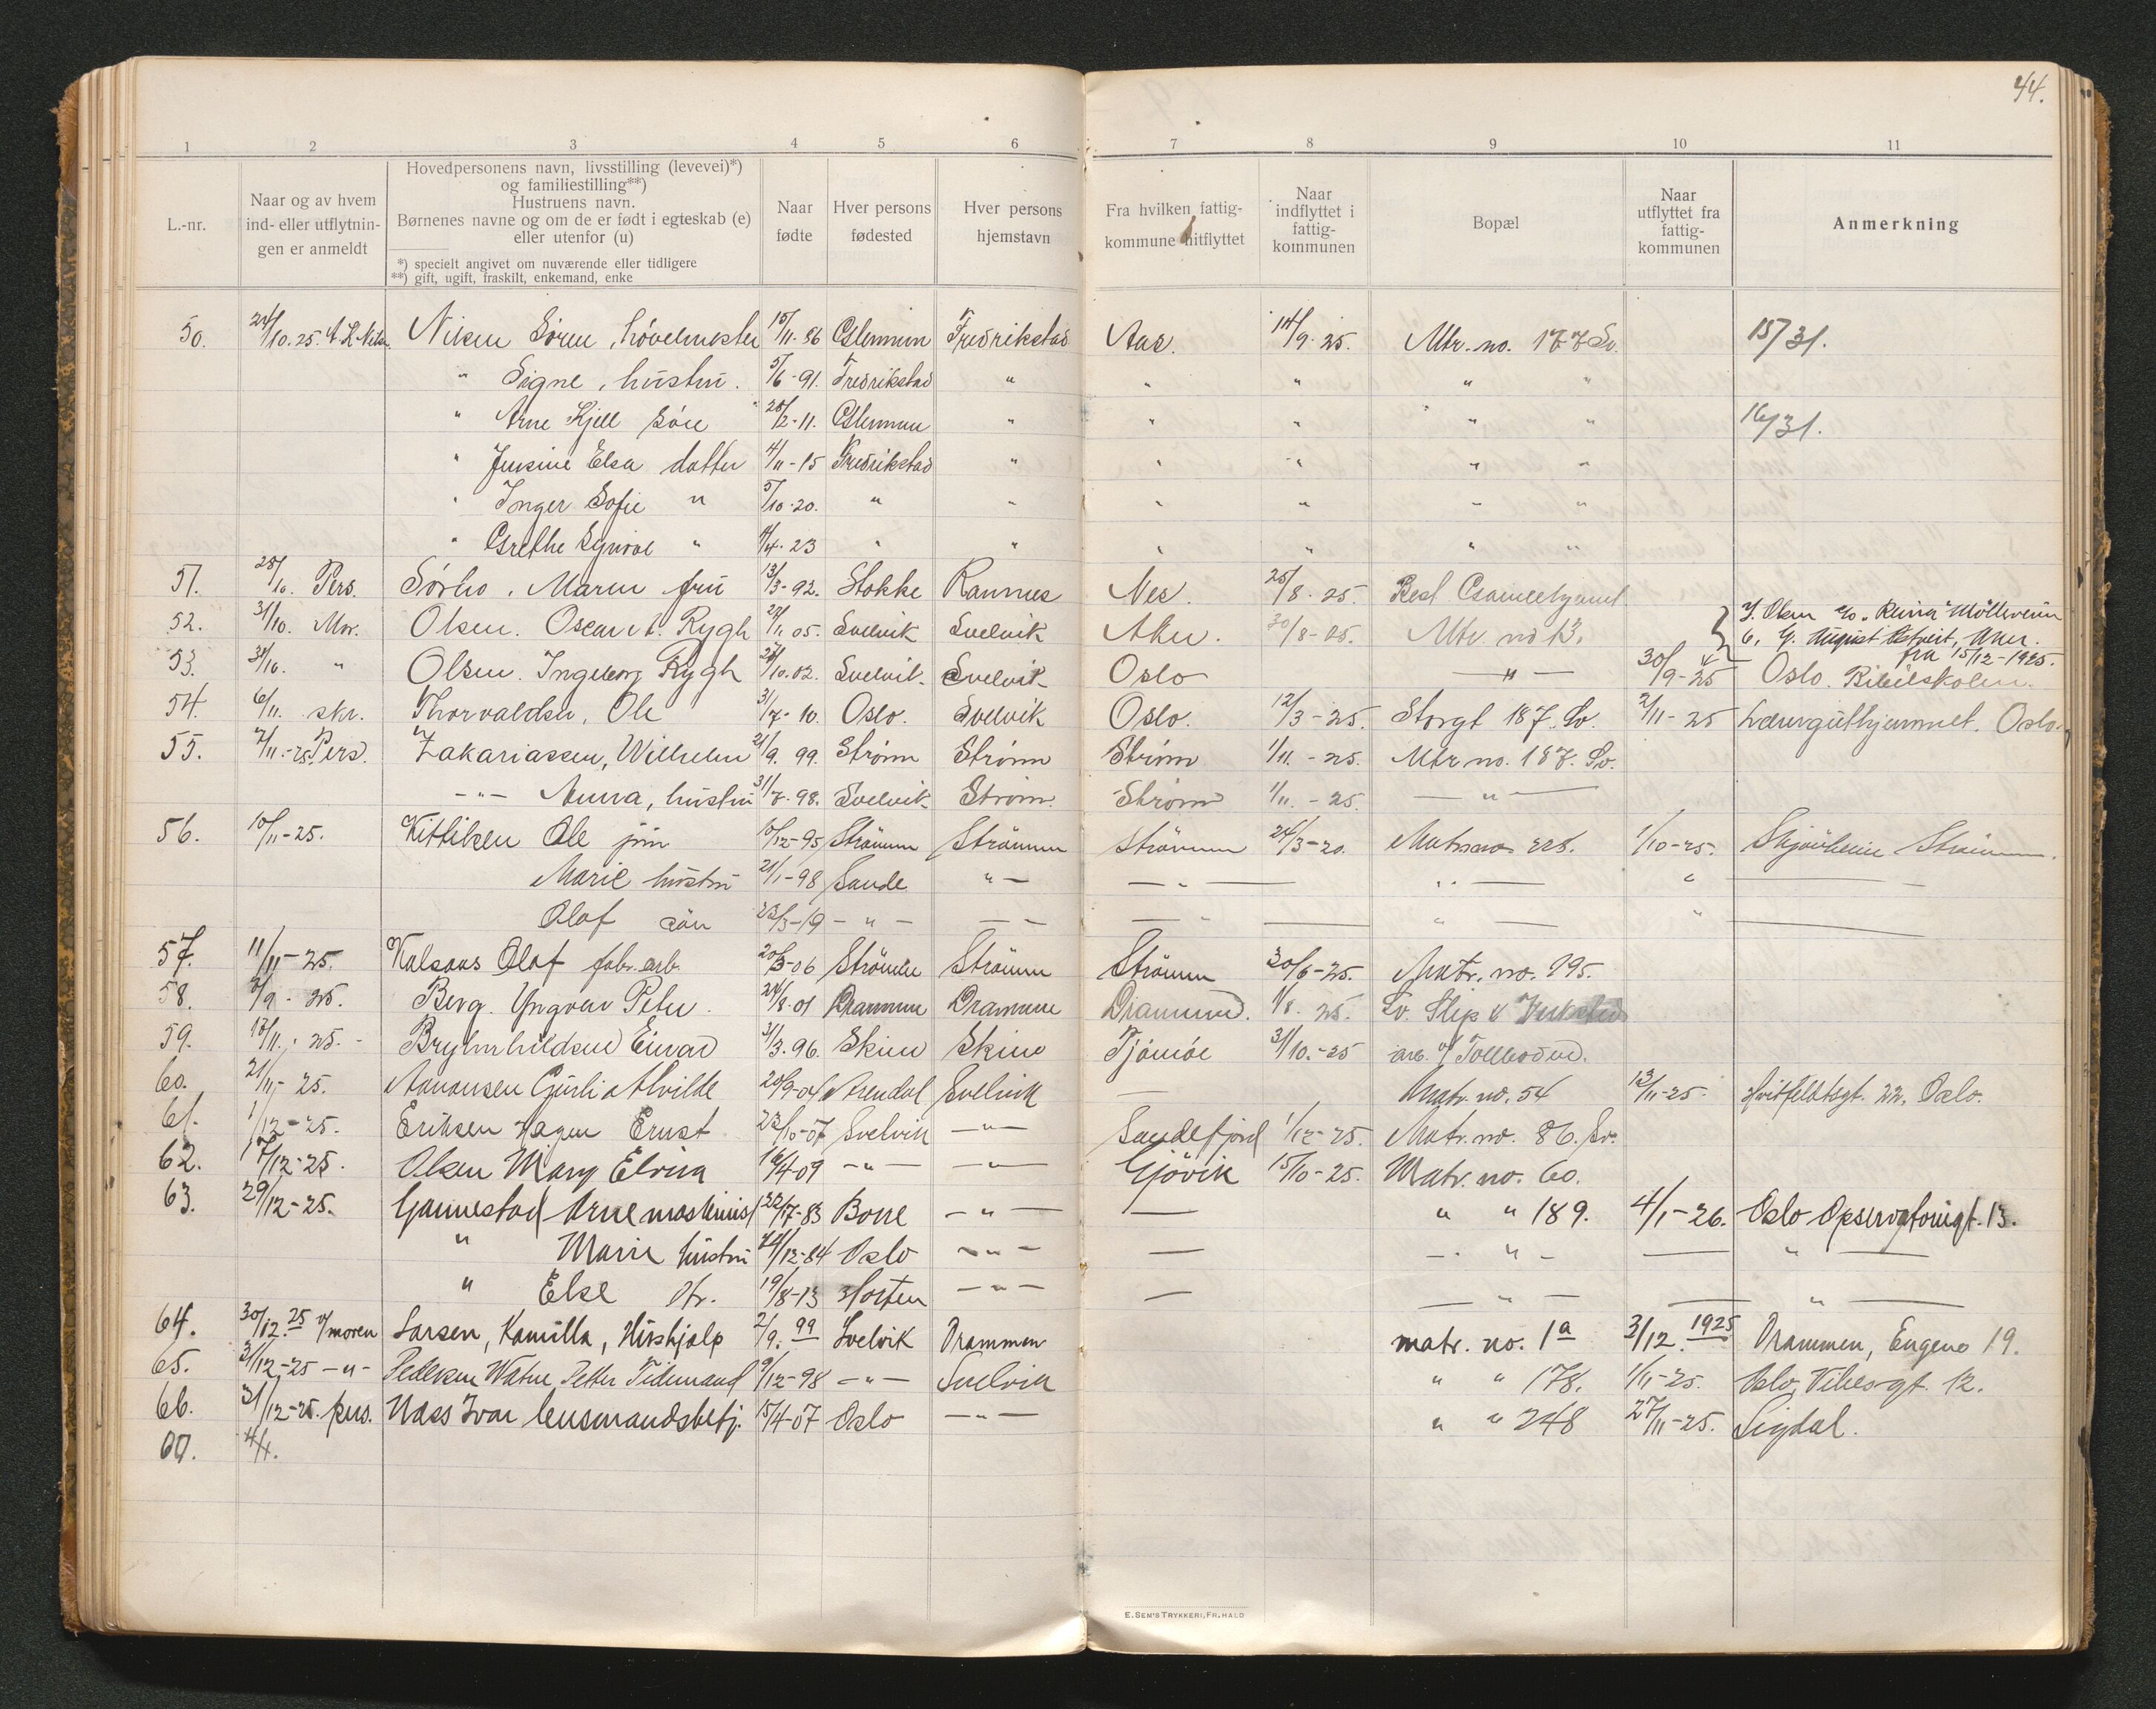 44.
1 2 3 4 5 6 7 8 9 10 11
L.-nr.
Naar og av hvem ind- eller utflytnin-gen er anmeldt
Hovedpersonens navn, livsstilling (levevei)*)
og familiestilling**)
Hustruens navn.
Børnenes navne og om de er født i egteskab (e)
eller utenfor (u)
*) specielt angivet om nuværende eller tidligere
**) gift, ugift, fraskilt, enkemand, enke
Naar fødte
Hver persons fødested
Hver persons hjemstavn
Fra hvilken fattig-kommune hitflyttet
Naar indflyttet i fattig-kommunen
Bopæl
Naar utflyttet fra fattig-kommunen
Anmerkning
50. 24/10.25. Nilsen Søren, høvelmester 15/11.86 Glemmen Fredrikstad Aas. 14/9.25. Mtr. no. 177 Sv. 15/31.
" Signe, hustru. 5/6-91. Fredrikstad " " " " "
" Arne Kjell søn 28/2-11. Glemmen " " " " " 16/31.
" Elsa datter 4/11-15 Fredrikstad " " " " "
" Inger Sofie " 5/10.20. " " " " " "
" Grethe " 4/4.23 " " " " " "
51. 28/10. Pers. Sørbo, Maren fru 13/3-92. Stokke Ramnes Nes. 25/8.25.
52. 31/10. Mor. Olsen. Oscar t. Rygh 29/11 05. Svelvik Svelvik Aker. 30/8-25. Mtr. no 13. }
6. G. August Aker.
fra 15/12-1925.
53. 31/10. " Olsen. Ingeborg Rygh 10.02. Svelvik Svelvik Oslo — " — 30/9-25 Oslo. Bibelskolen.
54. 6/11. skr. Thorvaldsen, Ole 31/7-10. Oslo. Svelvik Oslo. 12/3-25. Storgt 187. Sv. 2/11-25 Lærerguthjemmet. Oslo.
55. 7/11.-25. Pers. Zakariassen, Wilhelm 21/9.99. Strømm Strømm Strømm 1/11.-25. Mtr no. 187. Sv.
-"- Anna, hustru 31/7.98. Svelvik Strømm. Strømm 1/11.-25. — " —
56. 10/11-25. Kittilsen Ole jun 10/12-95 Strömm Strömm Strömm 24/3-20. Matr no 228. 1/10-25. Skjönheim Strömm.
Marie hustru 21/1-98 Sande " — — " — " — " —
Olaf sön 23/3-19 — " — — — — " — " — " —
57. 11/11-25. Olaf fabr. arb. 20/3-06 Strömm Strömm Strömm 30/6-25. Matr. no. 195.
58. 7/9.25. Berg. Yngvar Peter. 24/8.01 Drammen Drammen Drammen. 1/8.25. Sv. Slip &
59. 18/11.25. Brynhildsen Einar 3/3.96. Skien Skien Tjømøe 31/10.-25 arb. v/ Tollboden.
60. 21/11-25. Aanonsen Gurli Alvilde 20/9-04 Arendal Svelvik — Matr. no. 54 13/11-25. Hvitfeldtsgt. 22, Oslo.
61. 1/12-25. Eriksen Hagen Ernst 23/10-07 Svelvik — " — Sandefjord 1/12-25. Matr. no. 86. Sv.
62. 17/12-25. Olsen Mary Elvira 16/4-09 — " — — " — Gjövik 15/10-25. Matr. no. 60.
63. 29/12-25. Gannestad Arne maskinist 22/7-83 Borre — " — — " " 189. 4/1-26. Oslo Opservatorigt. 13.
" Marie hustru 24/12-84 Oslo — " — — — " — — " —
" Else dtr. 19/8-13 Horten — " — — — " — — " —
64. 30/12.25 v/ moren Larsen, Kamilla, Hushjelp 2/9.99 Svelvik Drammen matr. no. 1a 3/12.1925 Drammen, Engene 19.
65. 31/12-25 -"- Pedersen Watne Petter Tidemand 9/12-98 — " — Svelvik " " 178. 1/11-25. Oslo, Vibesgt. 12.
66. 31/12-25. pers. Næss Ivar lensmandsbetj. 15/4-07 Oslo — " — " " 248 27/11-25. Sigdal.
67. 4/4.
E. SEM'S TRYKKERI, FR.HALD